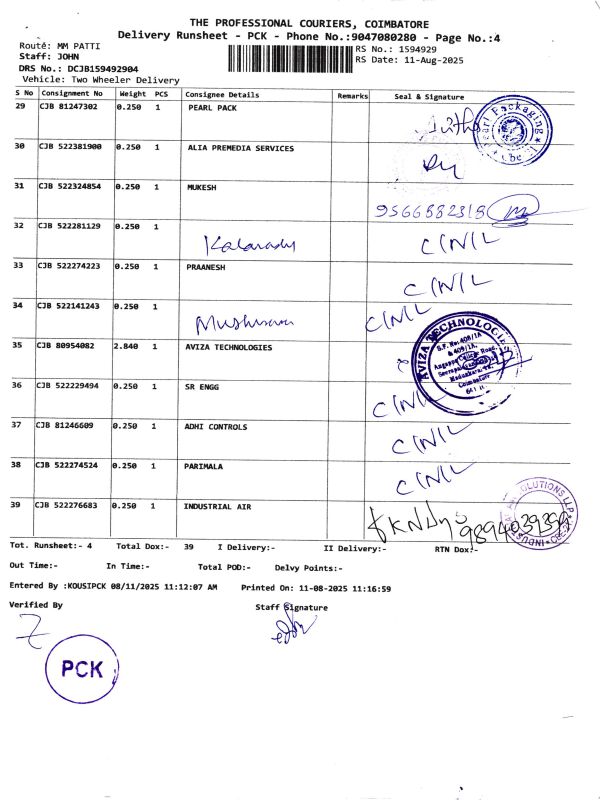 THE PROFESSIONAL COURIERS, COIMBATORE
Delivery Runsheet - PCK - Phone No.:9047080280 - Page No.:4
Route: MM PATTI
RS No.: 1594929
Staff: JOHN
RS Date: 11-Aug-2025
DRS No.: DCJB159492904
Vehicle: Two Wheeler Delivery
S No Consignment No Weight PCS Consignee Details Remarks Seal & Signature
29 CJB 81247302 0.250 1 PEARL PACK
30 CJB 522381900 0.250 1 ALIA PREMEDIA SERVICES
31 CJB 522324854 0.250 1 MUKESH
9566882318
32 CJB 522281129 0.250 1
CINIL
33 CJB 522274223 0.250 1 PRAANESH
CINIL
34 CJB 522141243 0.250 1
CINIL
35 CJB 80954082 2.840 1 AVIZA TECHNOLOGIES
AVIZA TECHNOLOGIES
S.F. No: 409/1A
& 409/1A,
Coimbatore
36 CJB 522229494 0.250 1 SR ENGG
CINIL
37 CJB 81246609 0.250 1 ADHI CONTROLS
CINIL
38 CJB 522274524 0.250 1 PARIMALA
CINIL
39 CJB 522276683 0.250 1 INDUSTRIAL AIR
Tot. Runsheet:- 4 Total Dox:- 39 I Delivery:- II Delivery:- RTN Dox:-
Out Time:- In Time:- Total POD:- Delvy Points:-
Entered By :KOUSIPCK 08/11/2025 11:12:07 AM Printed On: 11-08-2025 11:16:59
Verified By Staff Signature
PCK